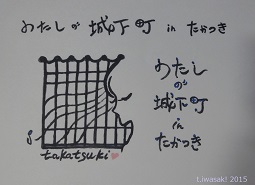 わたしの城下町 in たかつき
takatsuki
わたし
の
城下町
in
たかつき
I.Iwasaki 2015